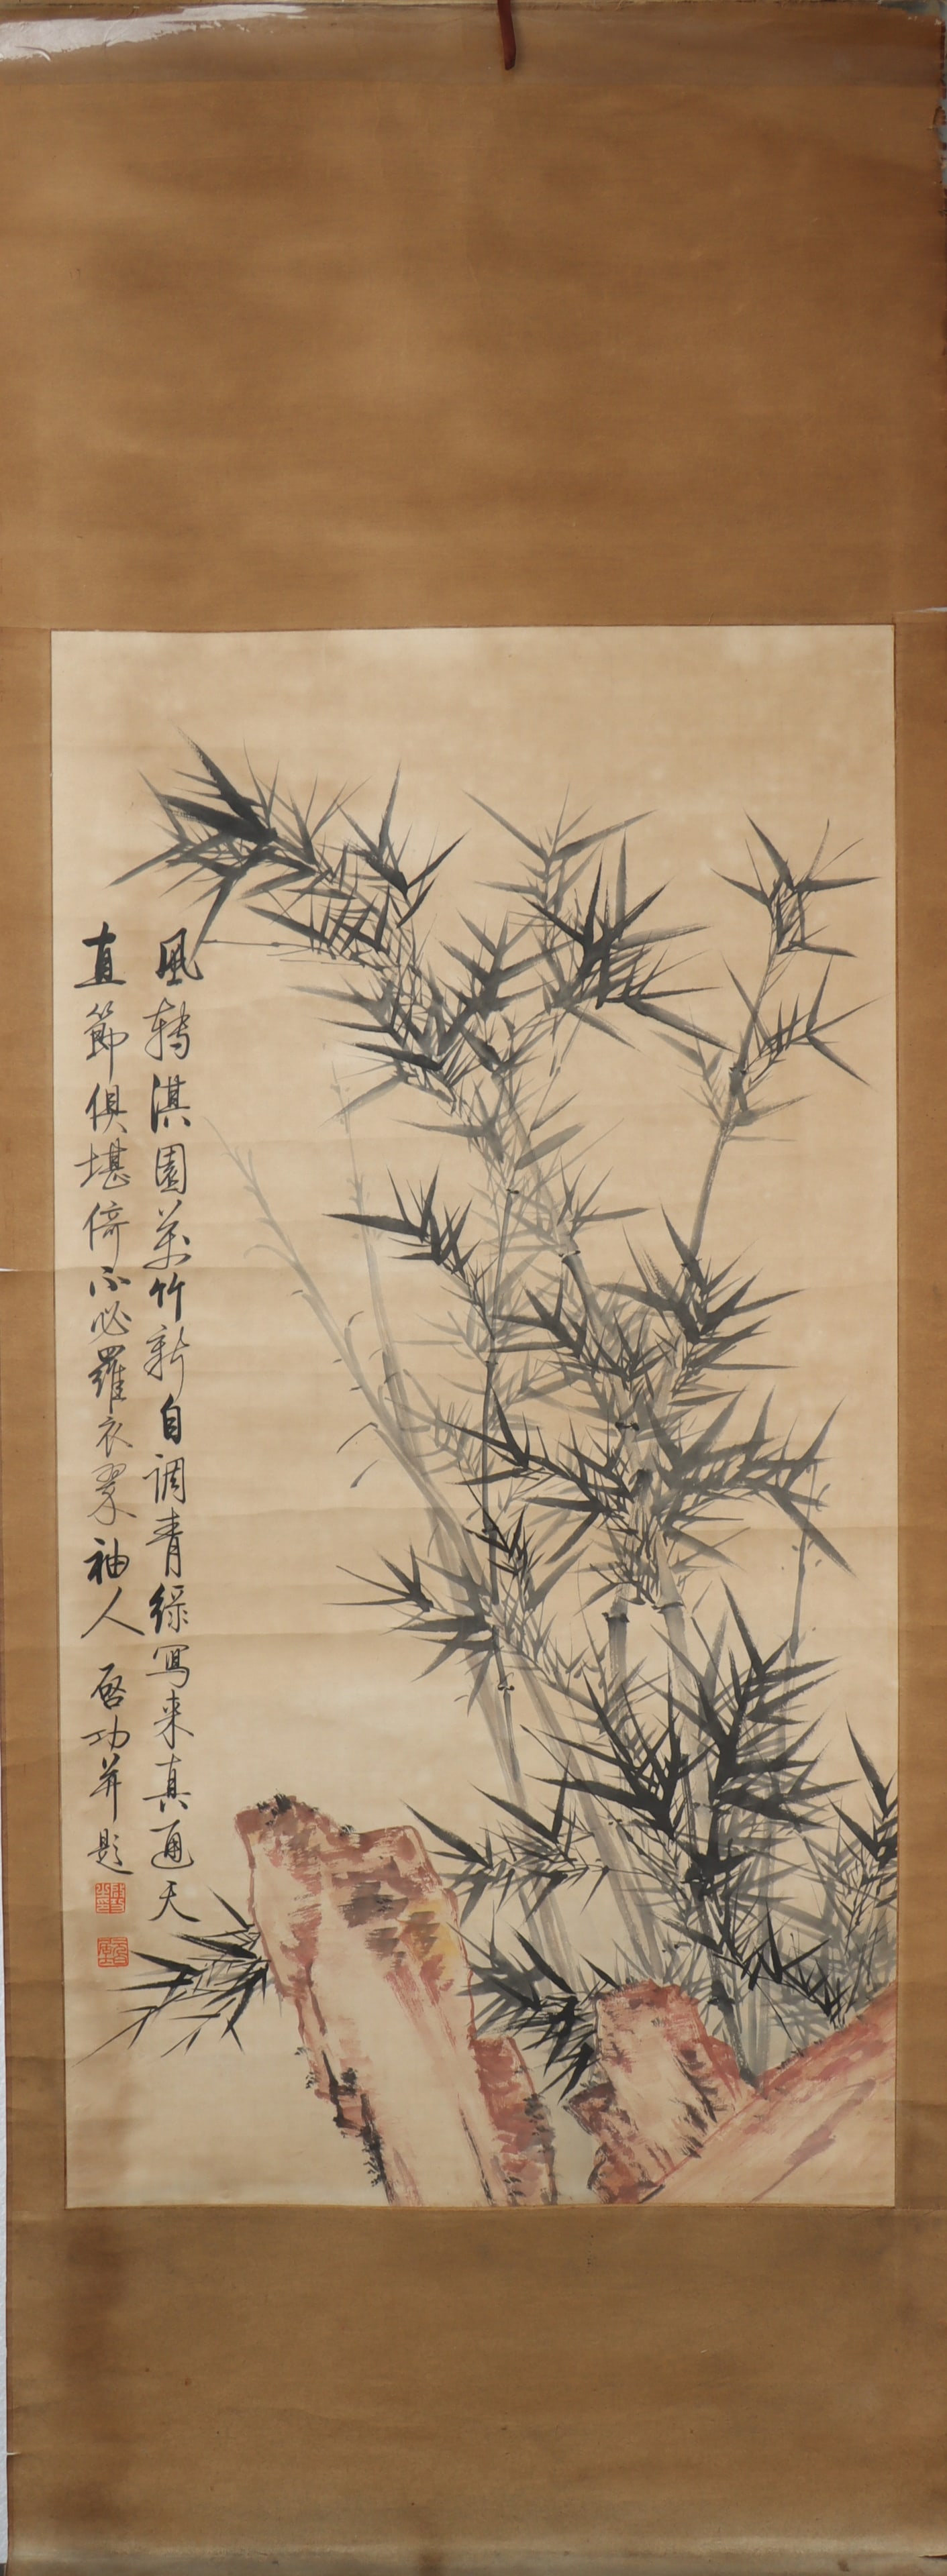 風轉淇園萬竹新自调青綠寫来真通天
直節俱堪倚不必羅衣翠袖人 啓功并題